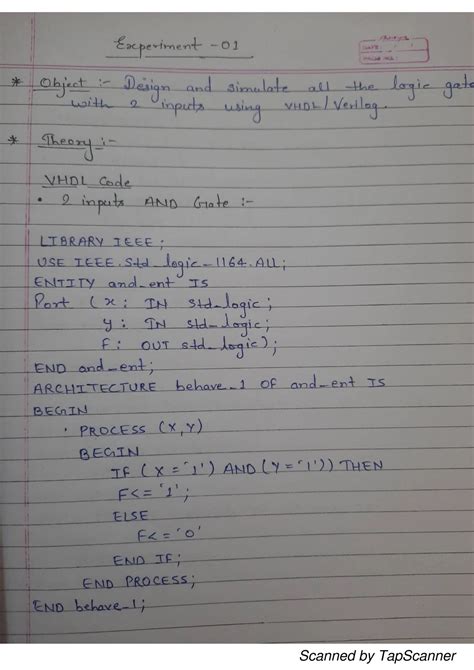 Experiment - 01
DATE:
PAGE NO.:
* Object :- Design and simulate all the logic gate
with 2 inputs using VHDL/Verilog.
* Theory :-
VHDL Code
• 2 inputs AND Gate :-
LIBRARY IEEE;
USE IEEE.Std_logic_1164.ALL;
ENTITY and_ent IS
Port (x: IN std_logic;
y: IN std_logic;
F: OUT std_logic);
END and_ent;
ARCHITECTURE behave_1 OF and_ent IS
BEGIN
• PROCESS (X,Y)
BEGIN
IF (X='1') AND (Y='1')) THEN
F<='1';
ELSE
F<='0'
END IF;
END PROCESS;
END behave_1;
Scanned by TapScanner